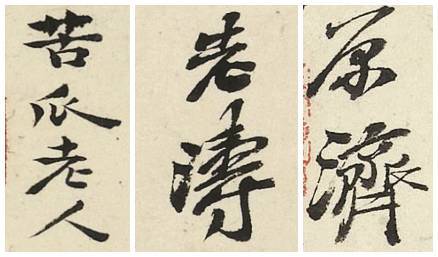 苦瓜老人
老濤
原濟